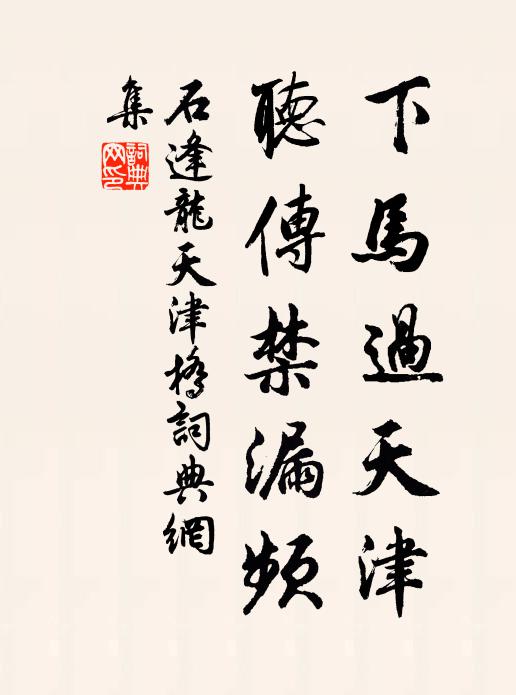 下馬過天津
聽傳禁漏頻
石逢龍天津橋詞典網
集
詞典
网印